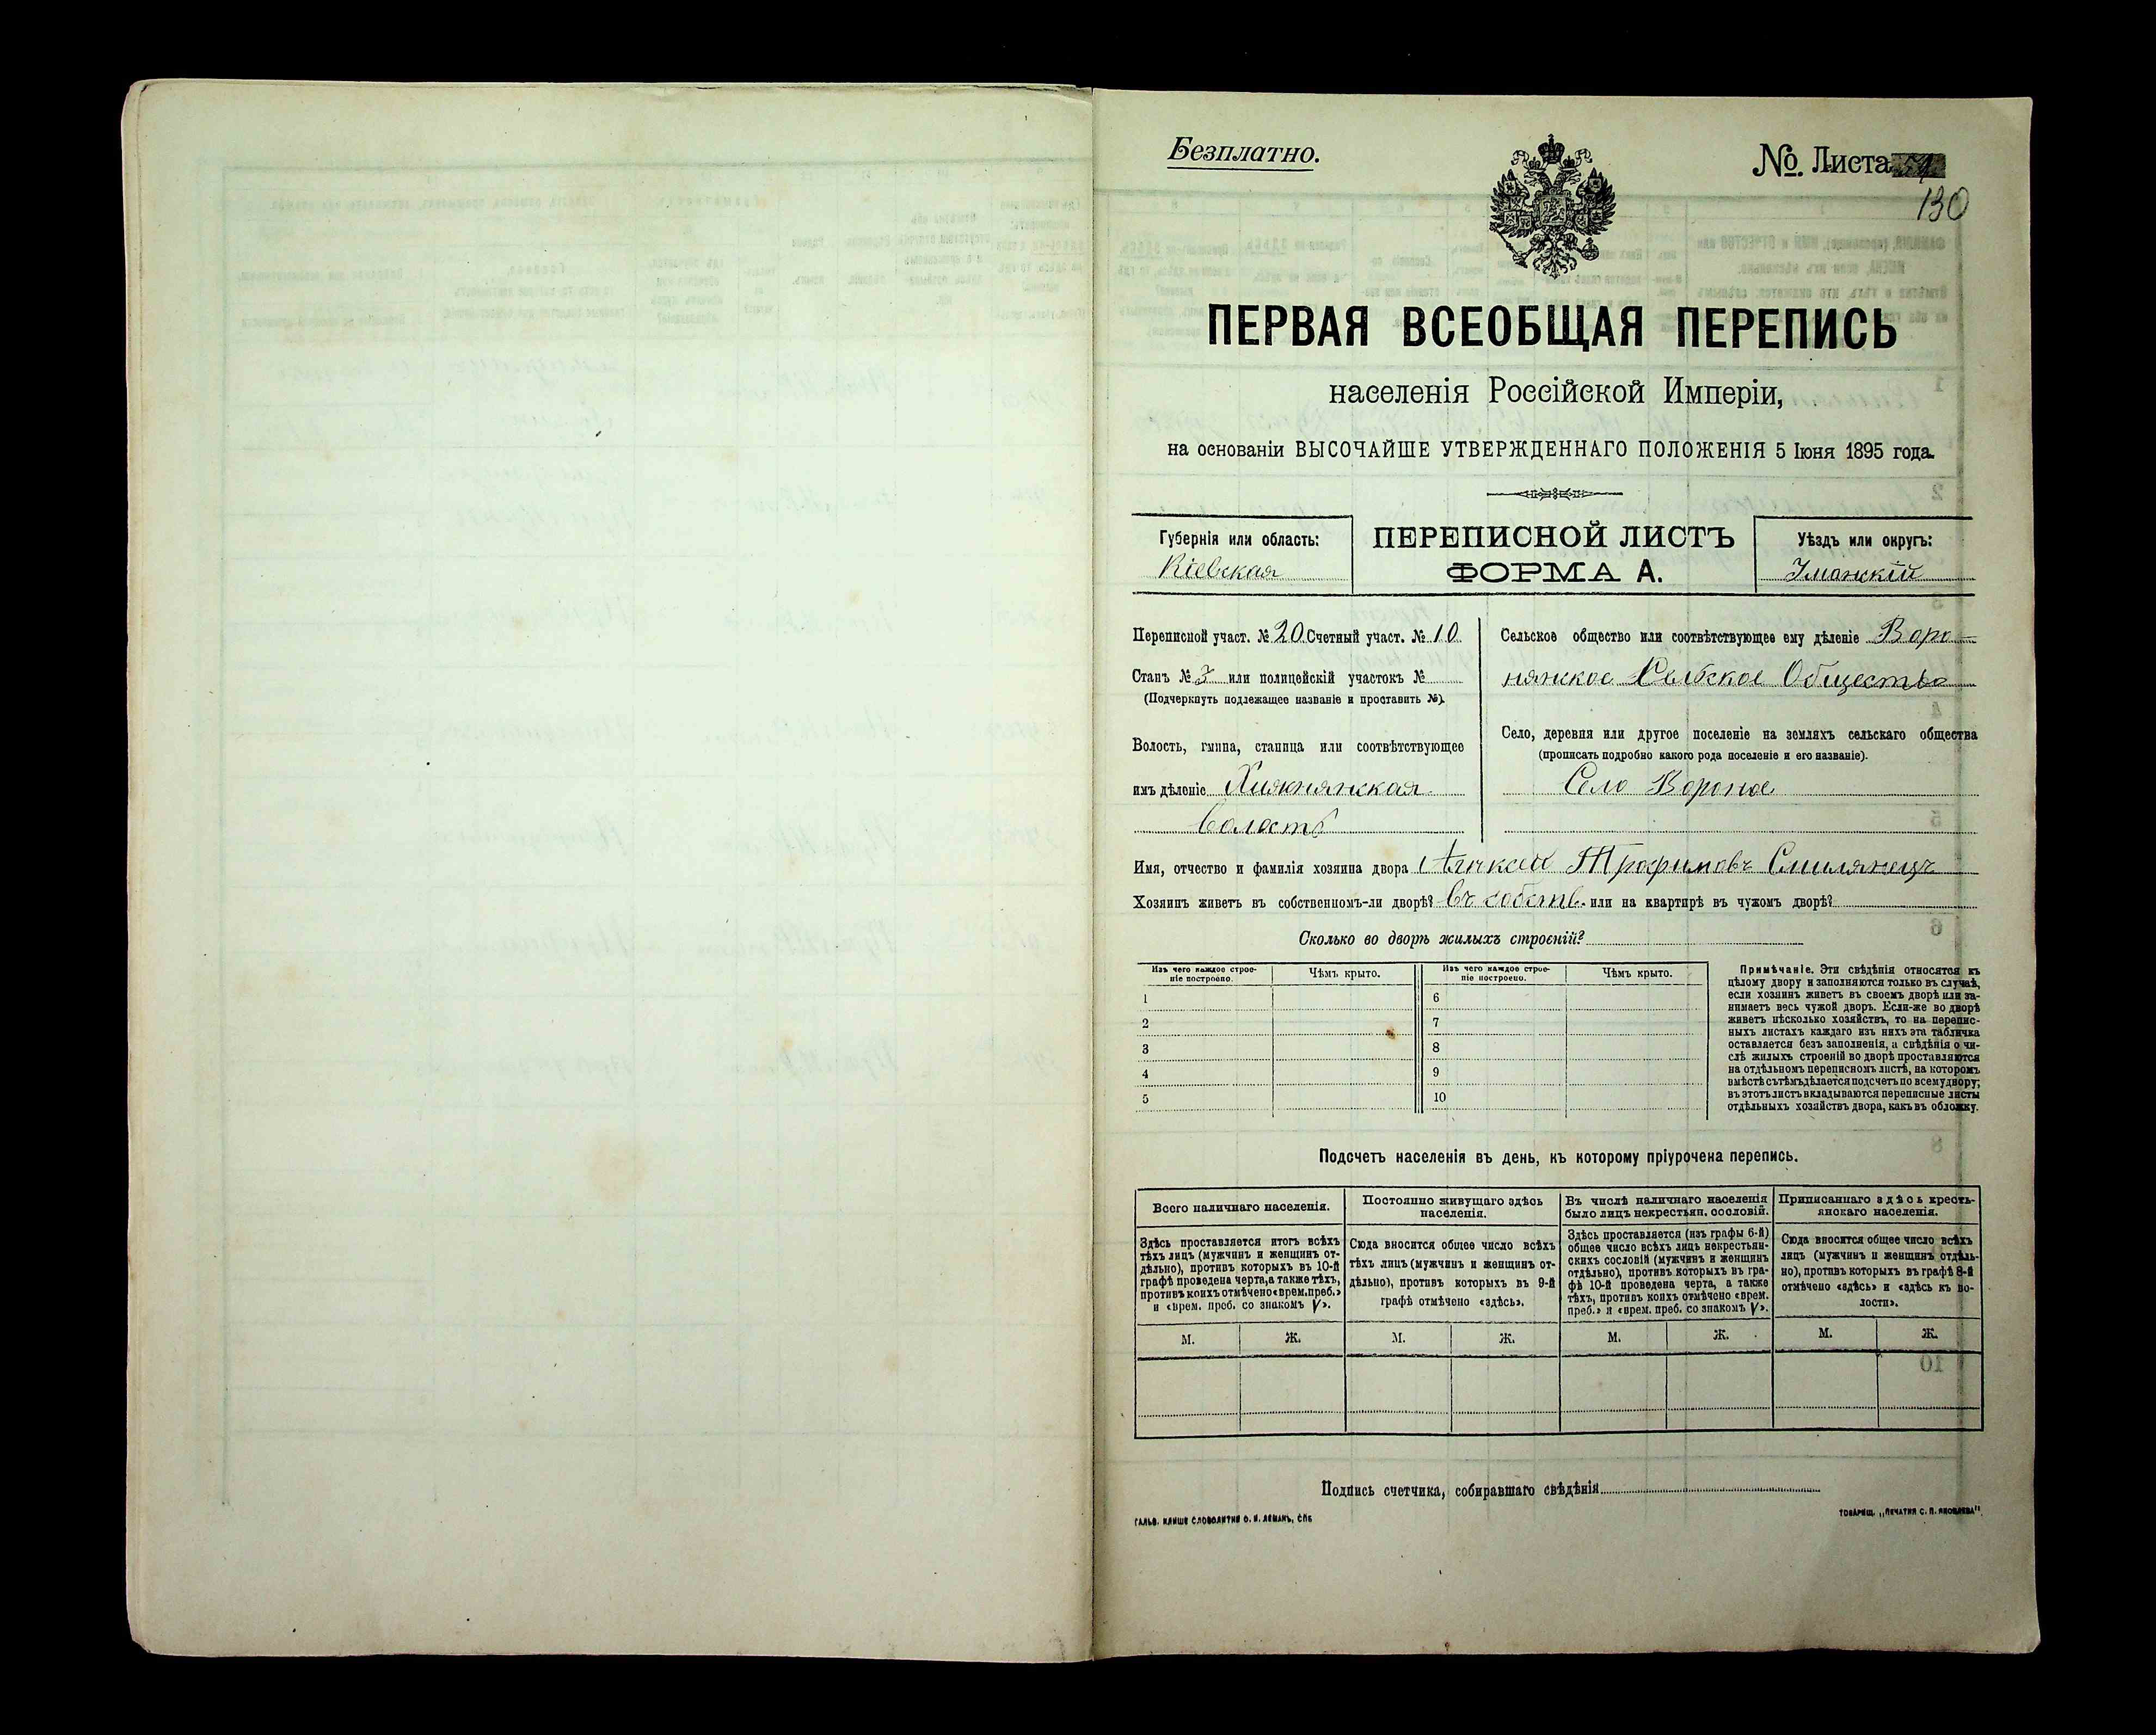 Безплатно.
№. Листа 54
130
ПЕРВАЯ ВСЕОБЩАЯ ПЕРЕПИСЬ
населенія Россійской Имперіи,
на основаніи ВЫСОЧАЙШЕ УТВЕРЖДЕННАГО ПОЛОЖЕНІЯ 5 Іюня 1895 года.
Губернія или область:
Кіевская
ПЕРЕПИСНОЙ ЛИСТЪ
ФОРМА А.
Уѣздъ или округъ:
Уманскій
Переписной участ. № 20 Счетный участ. № 10
Станъ № 3 или полицейскій участокъ №
(Подчеркнуть подлежащее названіе и проставить №).
Волость, гмина, станица или соотвѣтствующее
имъ дѣленіе Хижнянская
волость
Сельское общество или соотвѣтствующее ему дѣленіе Воро-
нянское Сельское Общество
Село, деревня или другое поселеніе на земляхъ сельскаго общества
(прописать подробно какого рода поселеніе и его названіе).
Село Вороное
Имя, отчество и фамилія хозяина двора Алексей Трофимовъ Смилянецъ
Хозяинъ живетъ въ собственномъ-ли дворѣ? въ собств. или на квартирѣ въ чужомъ дворѣ?
Сколько во дворѣ жилыхъ строеній?
Изъ чего каждое строе-
ніе построено.
Чѣмъ крыто.
Изъ чего каждое строе-
ніе построено.
Чѣмъ крыто.
1
2
3
4
5
6
7
8
9
10
Примѣчаніе. Эти свѣдѣнія относятся къ
цѣлому двору и заполняются только въ случаѣ,
если хозяинъ живетъ въ своемъ дворѣ или за-
нимаетъ весь чужой дворъ. Если-же во дворѣ
живетъ нѣсколько хозяйствъ, то на перепис-
ныхъ листахъ каждаго изъ нихъ эта табличка
оставляется безъ заполненія, а свѣдѣнія о чи-
слѣ жилыхъ строеній во дворѣ проставляются
на отдѣльномъ переписномъ листѣ, на которомъ
вмѣстѣ съ тѣмъ дѣлается подсчетъ по всему двору;
въ этотъ листъ вкладываются переписные листы
отдѣльныхъ хозяйствъ двора, какъ въ обложку.
Подсчетъ населенія въ день, къ которому пріурочена перепись.
Всего наличнаго населенія.
Здѣсь проставляется итогъ всѣхъ
тѣхъ лицъ (мужчинъ и женщинъ от-
дѣльно), противъ которыхъ въ 10-й
графѣ проведена черта, а также тѣхъ,
противъ коихъ отмѣчено «врем. преб.»
и «врем. преб. со знакомъ V».
Постоянно живущаго здѣсь
населенія.
Сюда вносится общее число всѣхъ
тѣхъ лицъ (мужчинъ и женщинъ от-
дѣльно), противъ которыхъ въ 9-й
графѣ отмѣчено «здѣсь».
Въ числѣ наличнаго населенія
было лицъ некрестьян. сословій.
Здѣсь проставляется (изъ графы 6-й)
общее число всѣхъ лицъ некрестьян-
скихъ сословій (мужчинъ и женщинъ
отдѣльно), противъ которыхъ въ гра-
фѣ 10-й проведена черта, а также
тѣхъ, противъ коихъ отмѣчено «врем.
преб.» и «врем. преб. со знакомъ V».
Приписаннаго здѣсь кресть-
янскаго населенія.
Сюда вносится общее число всѣхъ
лицъ (мужчинъ и женщинъ отдѣль-
но), противъ которыхъ въ графѣ 8-й
отмѣчено «здѣсь» и «здѣсь къ во-
лости».
М. Ж. М. Ж. М. Ж. М. Ж.
Подпись счетчика, собиравшаго свѣдѣнія
ГАЛЬВ. КЛИШЕ СЛОВОЛИТНИ О. И. ЛЕМАНЪ, СПБ
ТОВАРИЩ. „ПЕЧАТНЯ С. П. ЯКОВЛЕВА"